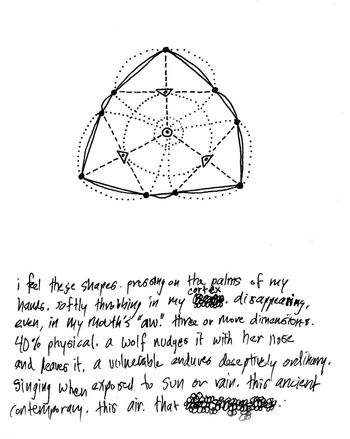 i feel these shapes. pressing on the palms of my
hands. softly throbbing in my cortex. disappearing,
even, in my mouth's "aw." three or more dimensions.
40% physical. a wolf nudges it with her nose
and leaves it. a vulnerable endures deceptively ordinary.
singing when exposed to sun or rain. this ancient
contemporary. this air. that